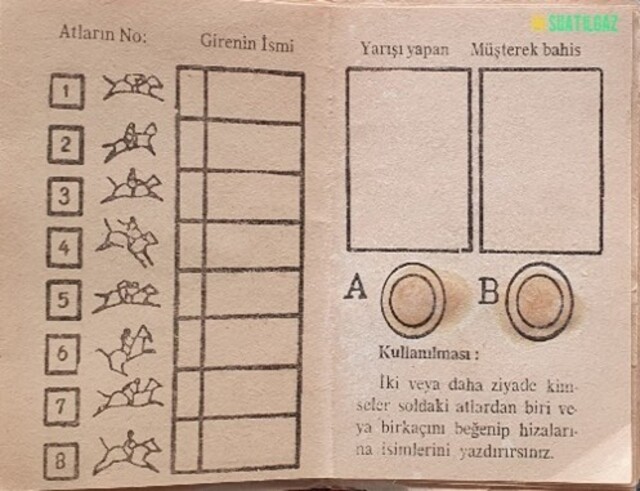 SUATILGAZ
Atların No:
Girenin İsmi
1
2
3
4
5
6
7
8
Yarışı yapan
Müşterek bahis
A
B
Kullanılması :
İki veya daha ziyade kim-
seler soldaki atlardan biri ve-
ya birkaçını beğenip hizaları-
na isimlerini yazdırırsınız.